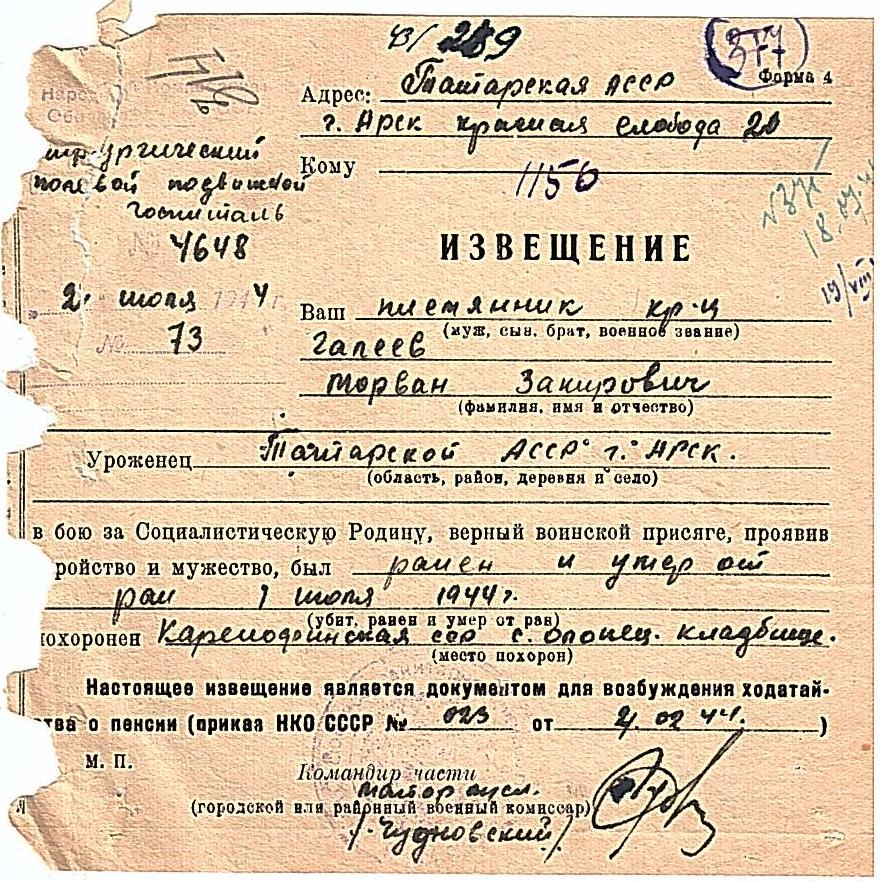 43/ 289
377
Форма 4
Адрес: Татарская АССР
г. Арск красная слобода 20
Кому
1156
Нарко
Обо
ирургический
полевой подвижной
госпиталь
№ 4648
2. июля 1944 г.
№ 73
18.07.4
19/VIII
ИЗВЕЩЕНИЕ
Ваш племянник кр-ц
(муж, сын, брат, военное звание)
Галеев
Морван Закирович
(фамилия, имя и отчество)
Уроженец Татарской АССР г. Арск.
(область, район, деревня и село)
в бою за Социалистическую Родину, верный воинской присяге, проявив
ройство и мужество, был ранен и умер от
ран 1 июля 1944г.
(убит, ранен и умер от ран)
похоронен Карелофинская сср с. Олонец. кладбище.
(место похорон)
Настоящее извещение является документом для возбуждения ходатай-
тва о пенсии (приказ НКО СССР № 023 от 4.02 44. )
М. П.
Командир части
майор
(городской или районный военный комиссар)
/Чудновский/